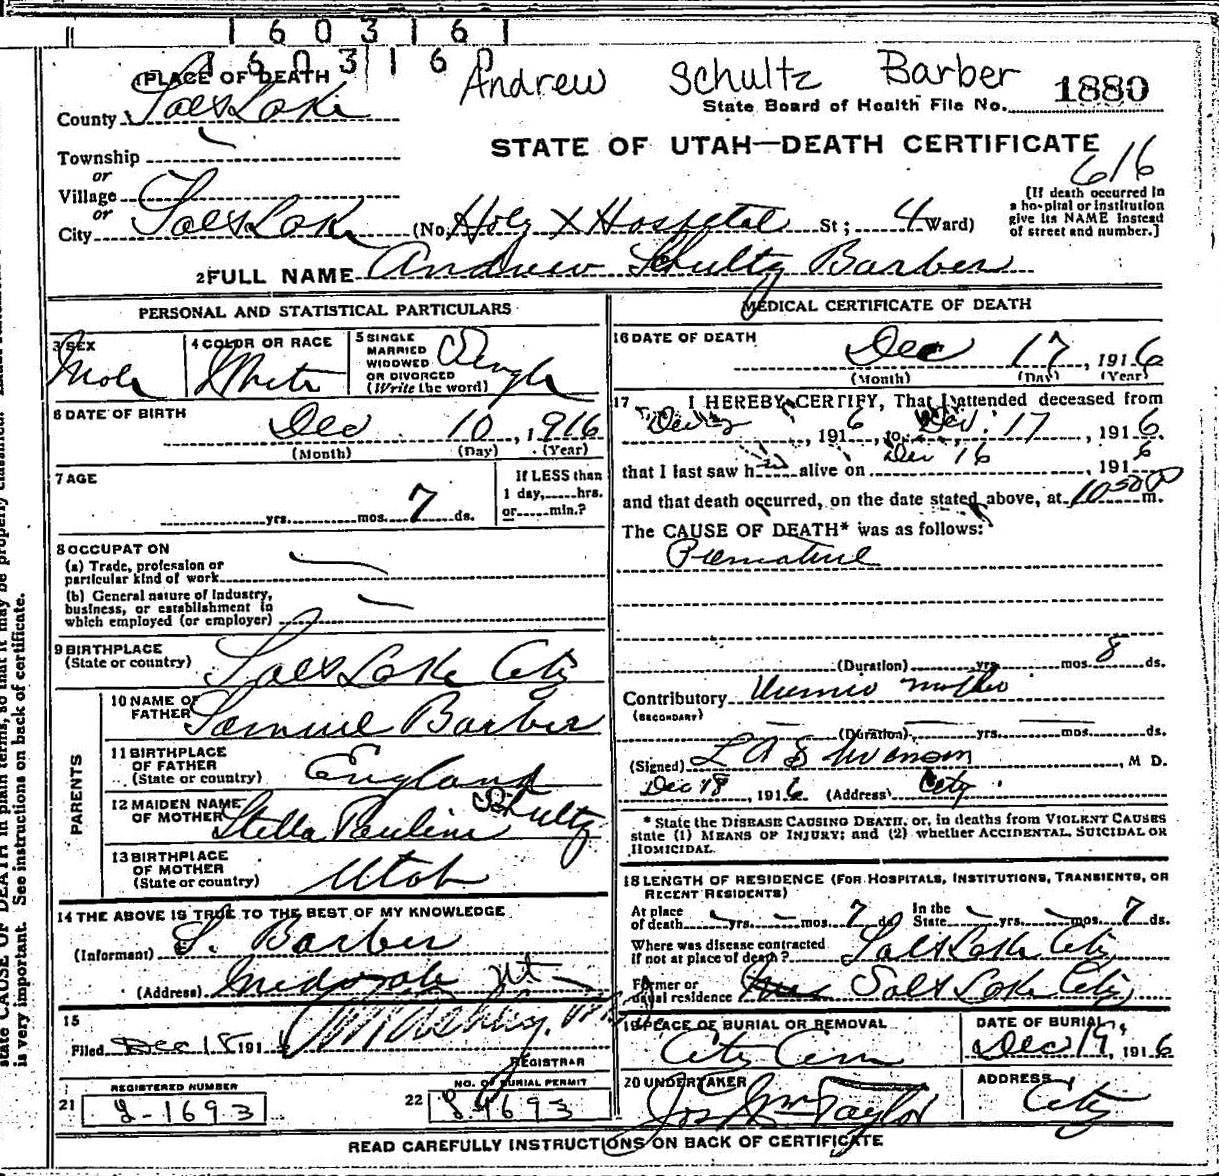 1 6 0 3 1 6 1
1 6 0 3 1 6 0
Andrew Schultz Barber
1 PLACE OF DEATH
State Board of Health File No. 1880
County Salt Lake
STATE OF UTAH—DEATH CERTIFICATE
616
Township
or
Village
or
City Salt Lake (No. Holy X Hospital St; 4 Ward)
[If death occurred in
a hospital or institution
give its NAME instead
of street and number.]
2 FULL NAME Andrew Schultz Barber
PERSONAL AND STATISTICAL PARTICULARS
3 SEX Male
4 COLOR OR RACE White
5 SINGLE
MARRIED
WIDOWED
OR DIVORCED
(Write the word) Single
6 DATE OF BIRTH
Dec 10, 1916
(Month) (Day) (Year)
7 AGE
yrs. mos. 7 ds.
If LESS than
1 day, hrs.
or min.?
8 OCCUPATON
(a) Trade, profession or
particular kind of work
(b) General nature of Industry,
business, or establishment in
which employed (or employer)
9 BIRTHPLACE
(State or country) Salt Lake City
PARENTS
10 NAME OF
FATHER Samuel Barber
11 BIRTHPLACE
OF FATHER
(State or country) England
12 MAIDEN NAME
OF MOTHER Stella Pauline Shultz
13 BIRTHPLACE
OF MOTHER
(State or country) Utah
14 THE ABOVE IS TRUE TO THE BEST OF MY KNOWLEDGE
(Informant) S. Barber
(Address) Midvale Ut
15
Filed Dec 18 191
REGISTRAR
REGISTERED NUMBER
21 S-1693
NO. OF BURIAL PERMIT
22 S-1693
MEDICAL CERTIFICATE OF DEATH
16 DATE OF DEATH
Dec 17, 1916
(Month) (Day) (Year)
17 I HEREBY CERTIFY, That I attended deceased from
, 1916, to Dec. 17, 1916.
that I last saw h alive on Dec 16, 1916
and that death occurred, on the date stated above, at 1050 P m.
The CAUSE OF DEATH* was as follows:
Premature
(Duration) yrs. mos. 8 ds.
Contributory Uremic mother
(SECONDARY)
(Duration) yrs. mos. ds.
(Signed) L A S Swenson, M D.
Dec 18, 1916 (Address) City
* State the DISEASE CAUSING DEATH, or, in deaths from VIOLENT CAUSES
state (1) MEANS OF INJURY; and (2) whether ACCIDENTAL, SUICIDAL OR
HOMICIDAL.
18 LENGTH OF RESIDENCE (FOR HOSPITALS, INSTITUTIONS, TRANSIENTS, OR
RECENT RESIDENTS)
At place
of death yrs. mos. 7 ds
In the
State yrs. mos. 7 ds.
Where was disease contracted
if not at place of death? Salt Lake City
Former or
usual residence Salt Lake City
19 PLACE OF BURIAL OR REMOVAL
City Cem
DATE OF BURIAL
Dec 19, 1916
20 UNDERTAKER
Jos Wm Taylor
ADDRESS
City
READ CAREFULLY INSTRUCTIONS ON BACK OF CERTIFICATE
state CAUSE OF DEATH in plain terms, so that it may be properly classified.
is very important. See instructions on back of certificate.